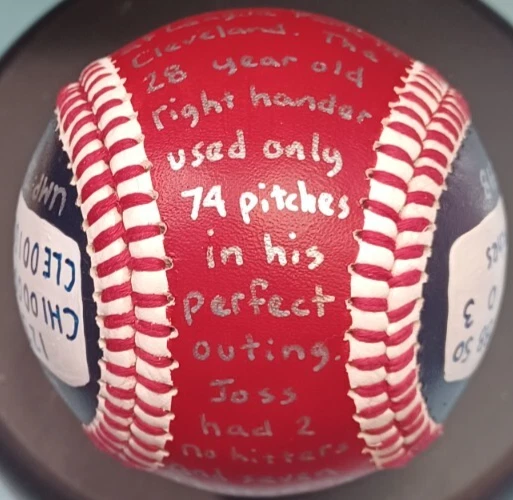 Cleveland. The
28 year old
right hander
used only
74 pitches
in his
perfect
outing.
Joss
had 2
no hitters
and seven
UMP
CLE 001
CHI 000
12
SO
3
0